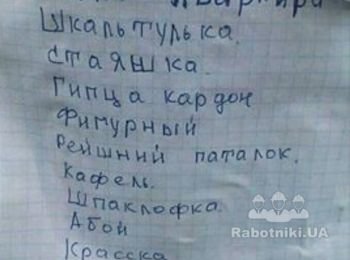 Шкальтулька.
стаяшка.
Гипца кардон
Фигурный
Рейшний паталок.
Кафель.
Шпаклофка.
Абой
Красска
Rabotniki.UA